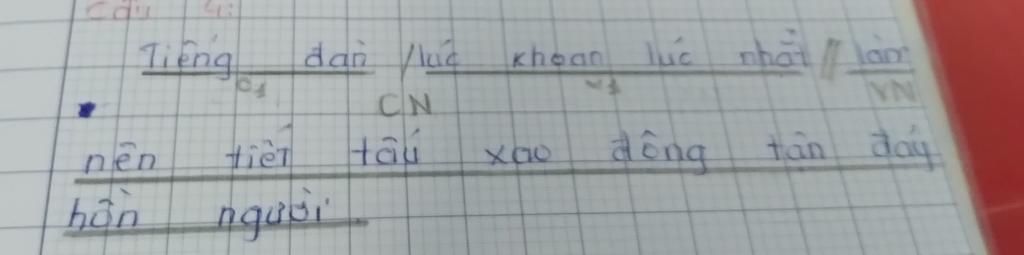 Câu 4:
Tiếng đàn / lúc khoan lúc nhặt // làm
C1 CN V1 VN
nên tiết tấu xao động tận đáy
hồn người.